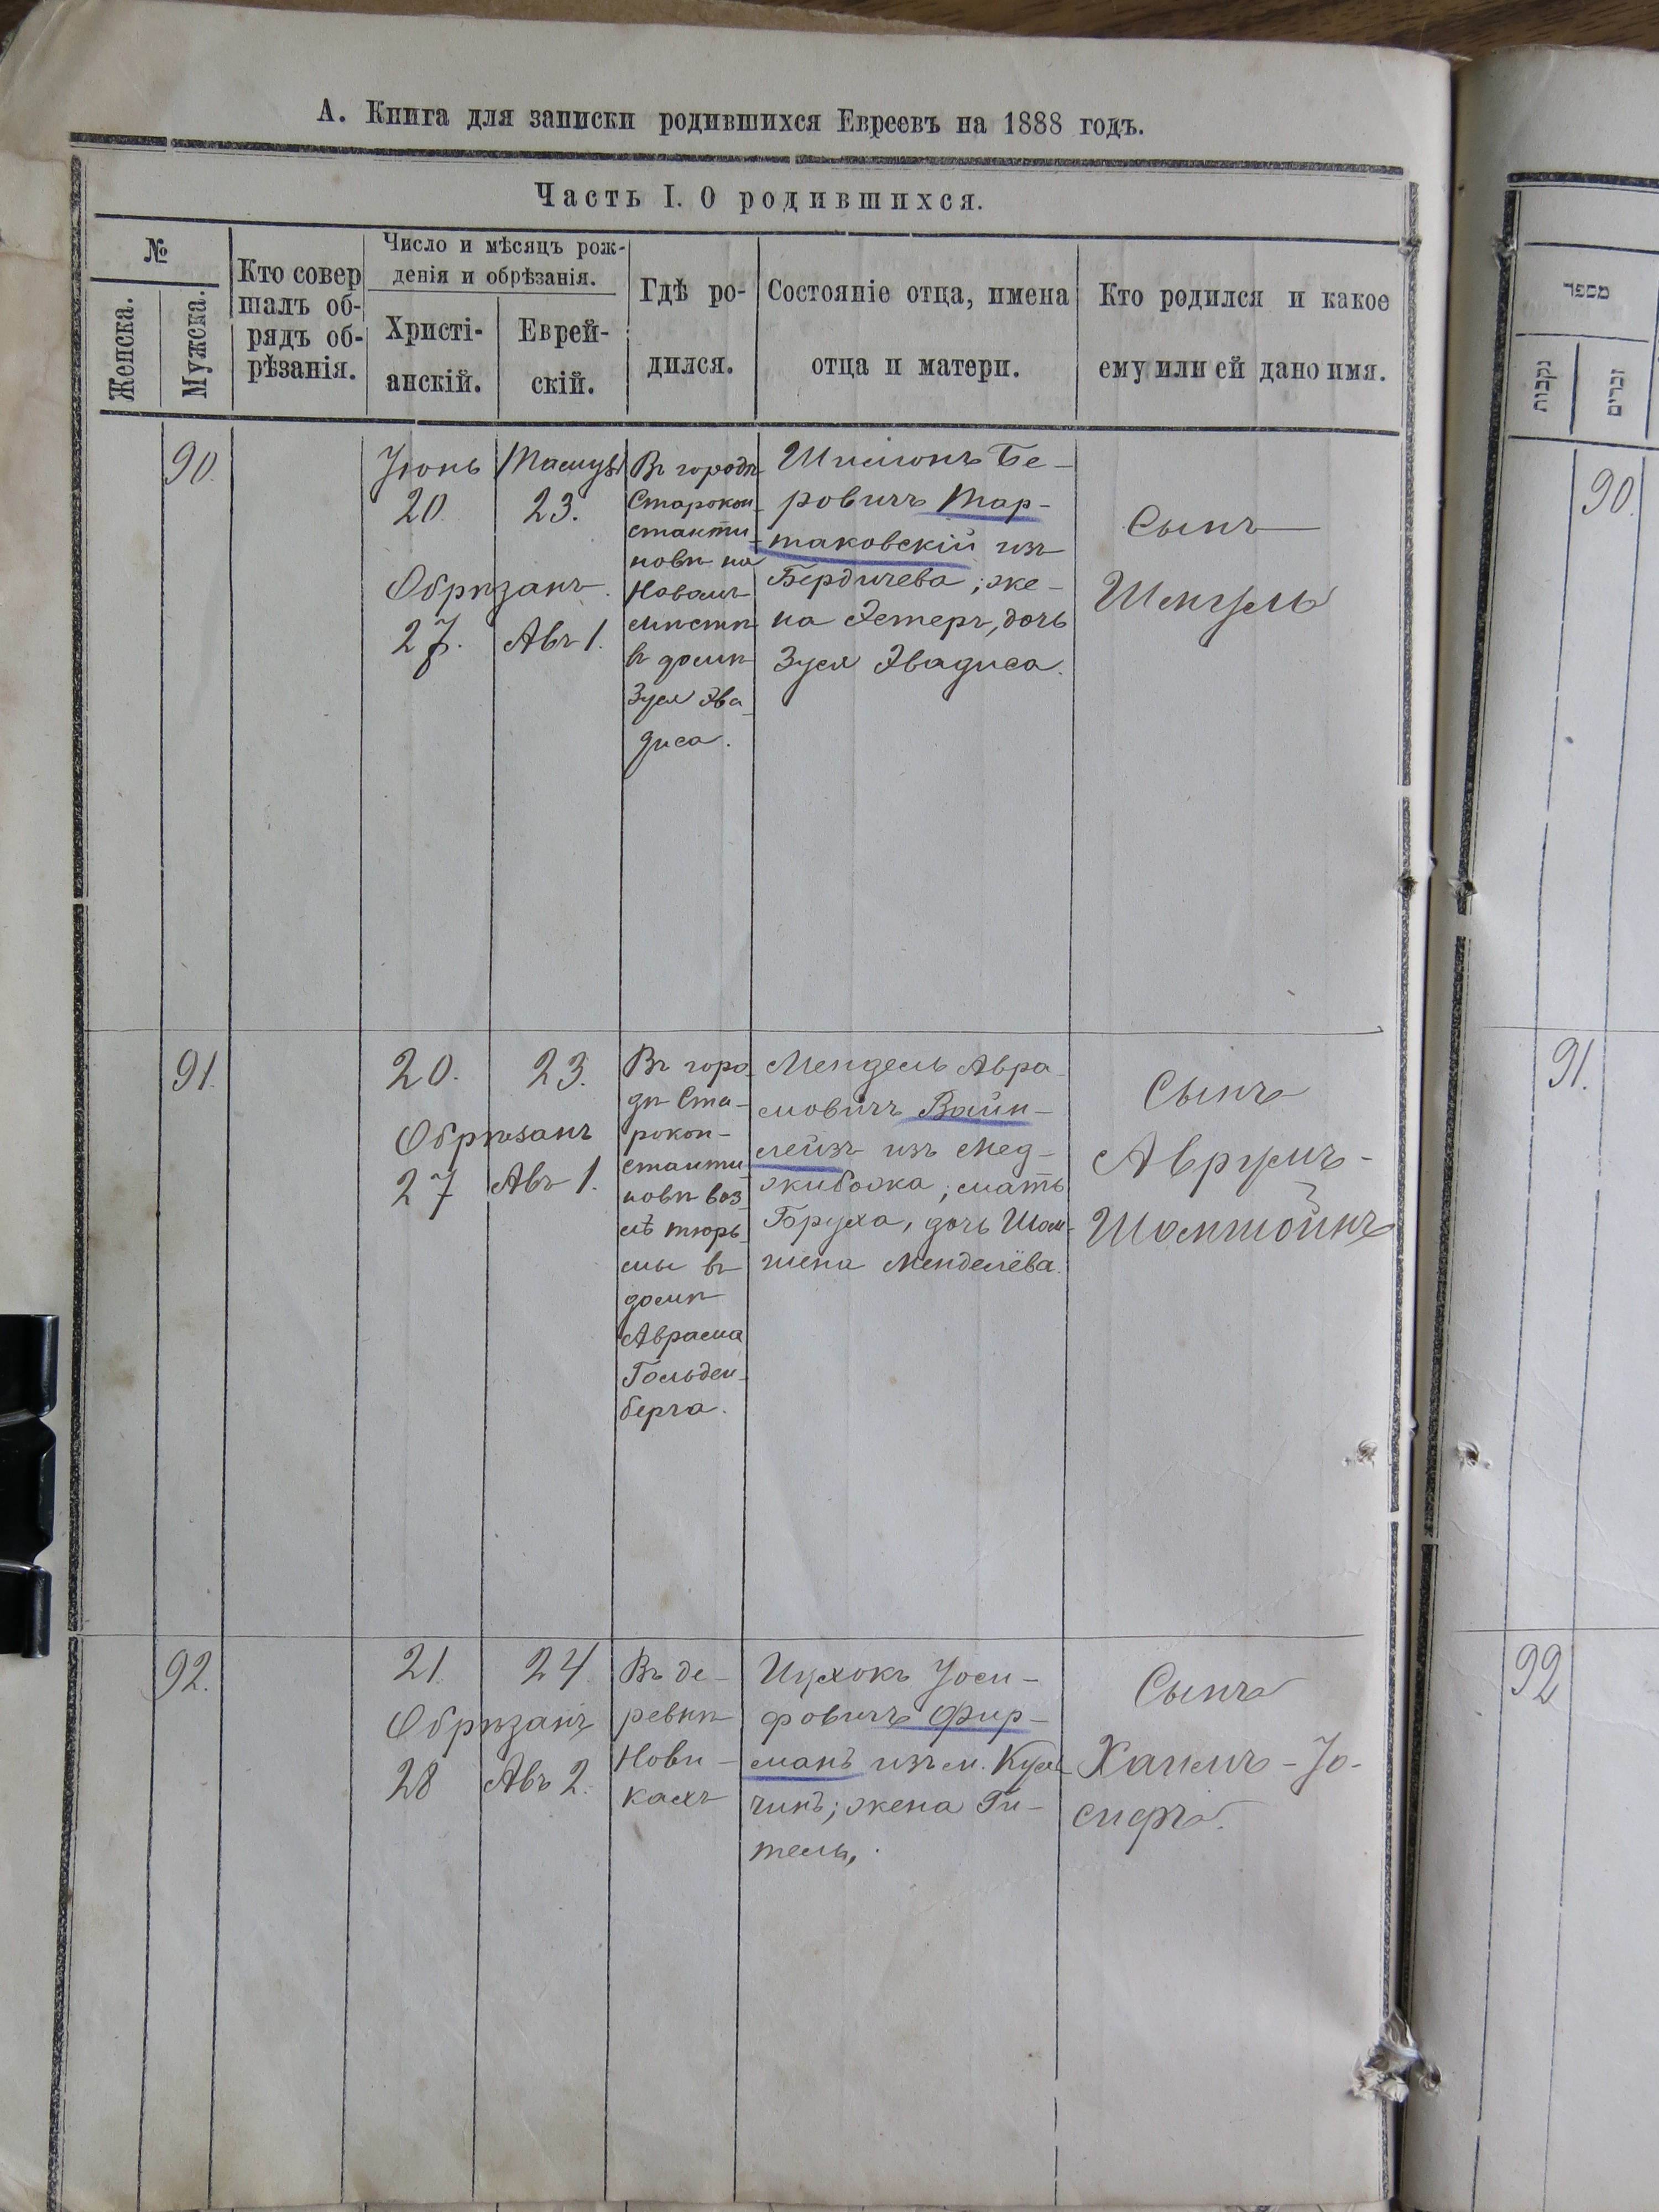 А. Книга для записки родившихся Евреевъ на 1888 годъ.
Часть I. О родившихся.
№
Женска.
Мужска.
Кто совер
шалъ об-
рядъ об-
рѣзанія.
Число и мѣсяцъ рож-
денія и обрѣзанія.
Христі-
анскій.
Еврей-
скій.
Гдѣ ро-
дился.
Состояніе отца, имена
отца и матери.
Кто родился и какое
ему или ей дано имя.
90.
Іюнь
20.
Тамузъ
23.
Обрѣзанъ.
27.
Авъ 1.
Въ городѣ
Старокон
станти
новѣ на
Новомъ
мѣстѣ
въ домѣ
Зуся Эва
диса.
Шмионъ Бе-
ровичъ Тар-
таковскій изъ
Бердичева; же-
на Эстеръ, дочь
Зуся Эвадиса.
Сынъ
Шмуль
91.
20.
23.
Обрѣзанъ
27
Авъ 1.
Въ горо
дѣ Ста-
рокон-
станти
новѣ воз
лѣ тюрь
мы въ
домѣ
Аврама
Гольден
берга.
Мендель Авра
мовичъ Вайн-
лейзъ изъ Мед-
жибожа; мать
Боруха, дочь Шом-
шена Менделева.
Сынъ
Аврумъ-
Шомшойнъ
92.
21.
24.
Обрѣзанъ
28
Авъ 2.
Въ де-
ревнѣ
Нови-
кахъ
Ицхокъ Іоси-
фовичъ Фир-
манъ изъ м. Куль
чинъ; жена Ги-
тель,
Сынъ
Хаимъ-Іо-
сифъ.
מספר
נקבות
זכרים
90.
91.
92